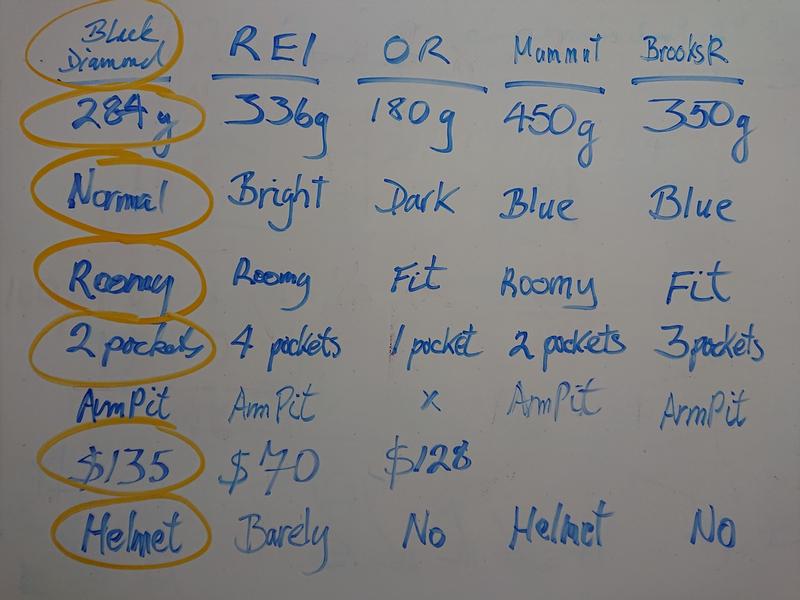 Black Diamond REI OR Mammut BrooksR
284g 336g 180g 450g 350g
Normal Bright Dark Blue Blue
Roomy Roomy Fit Roomy Fit
2 pockets 4 pockets 1 pocket 2 pockets 3 pockets
ArmPit ArmPit x ArmPit ArmPit
$135 $70 $128
Helmet Barely No Helmet No